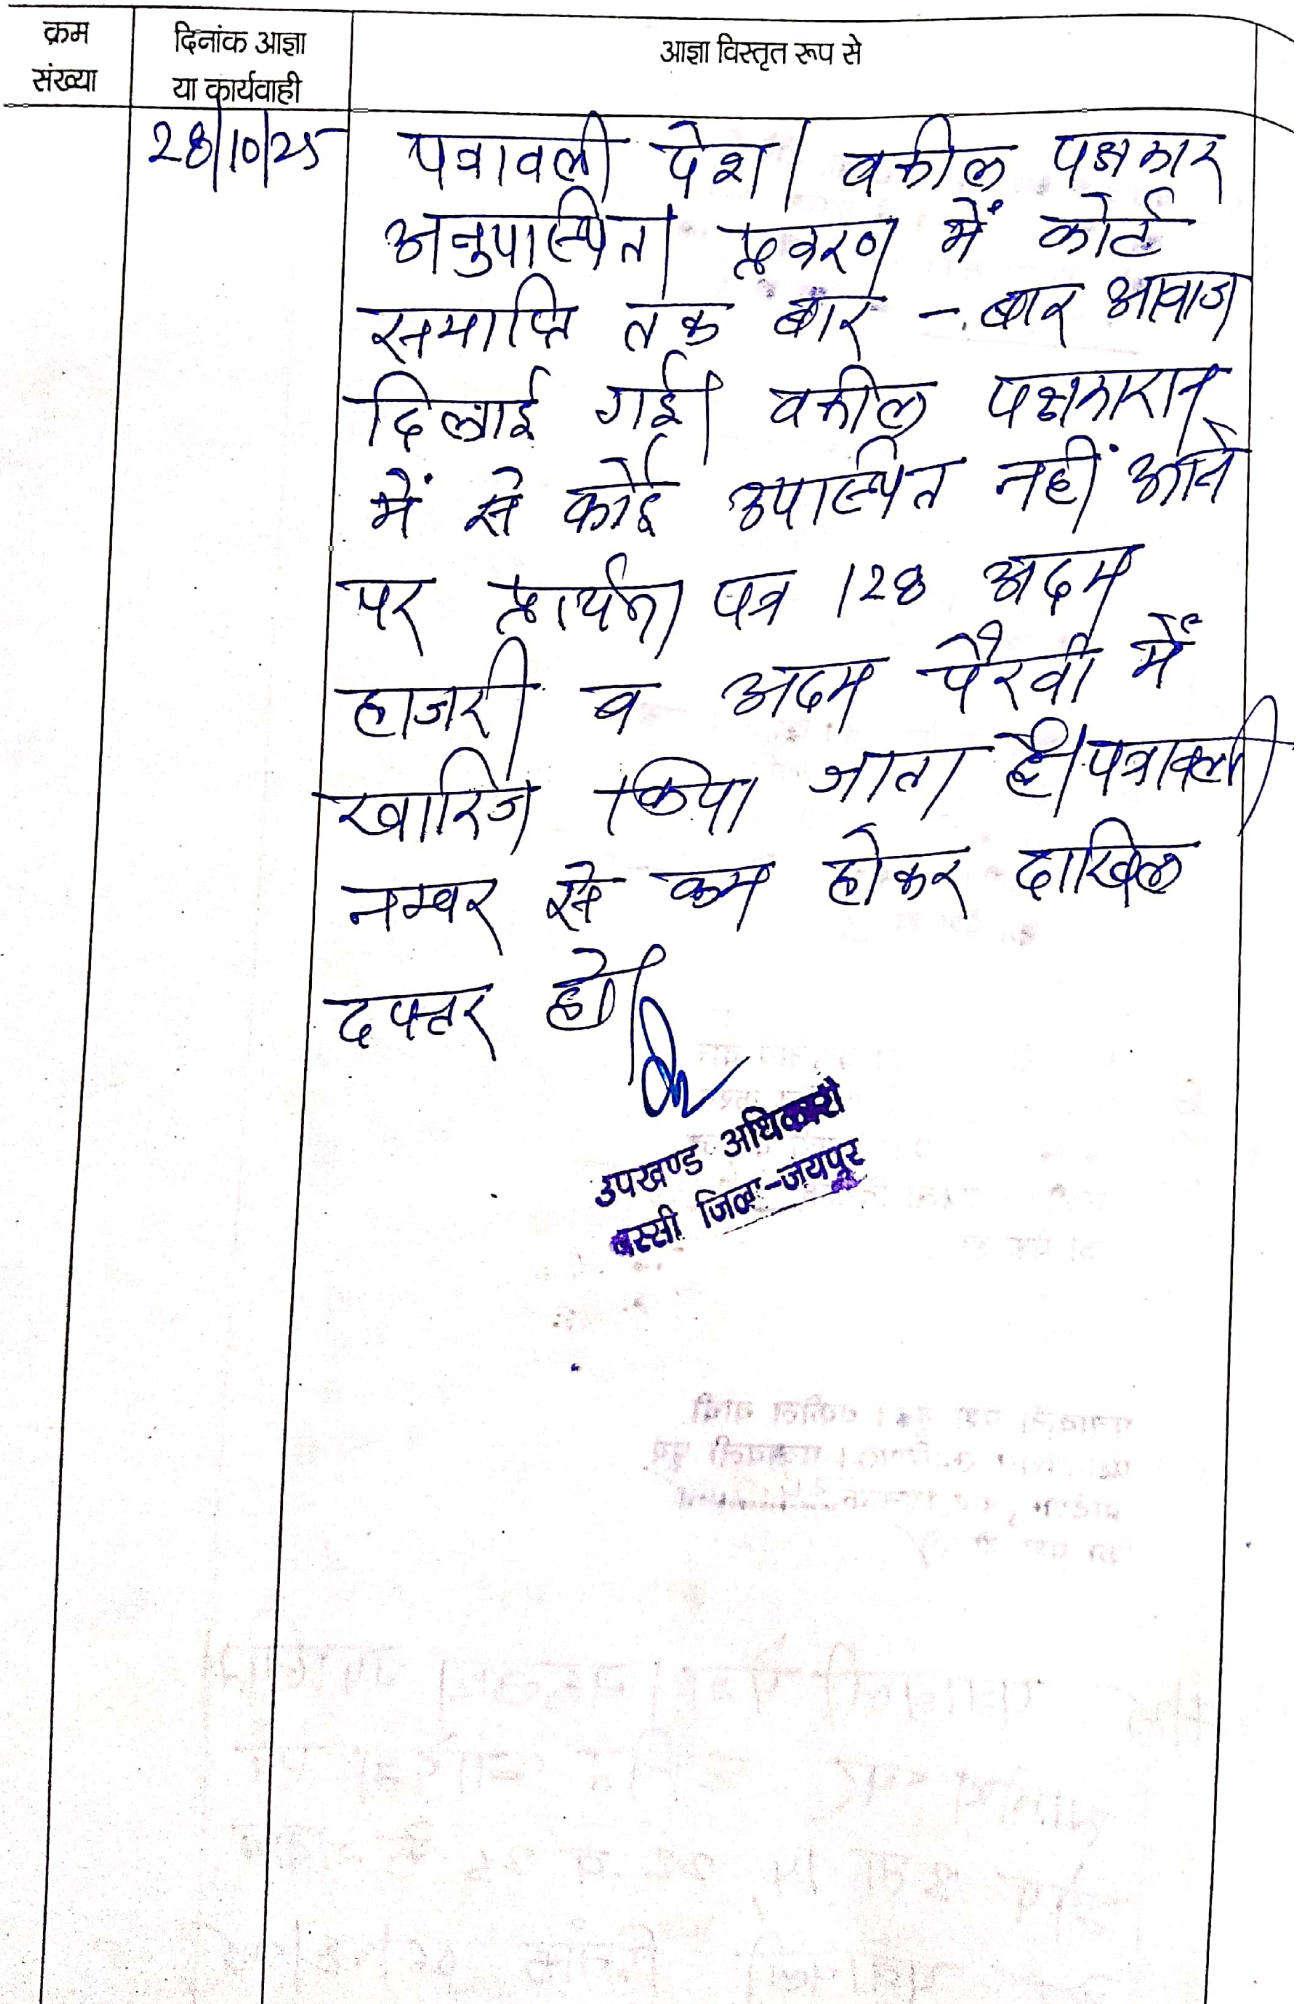 क्रम
संख्या
दिनांक आज्ञा
या कार्यवाही
आज्ञा विस्तृत रूप से
28/10/25
पत्रावली पेश। वकील पक्षकार
अनुपस्थित। प्रकरण में कोर्ट
समाप्ति तक बार - बार आवाज
दिलाई गई। वकील पक्षकारान
में से कोई उपस्थित नहीं आने
पर प्रार्थना पत्र 128 अदम
हाजरी व अदम पैरवी में
खारिज किया जाता है। पत्रावली
नम्बर से कम होकर दाखिल
दफ्तर हो।
उपखण्ड अधिकारी
बस्सी जिला-जयपुर